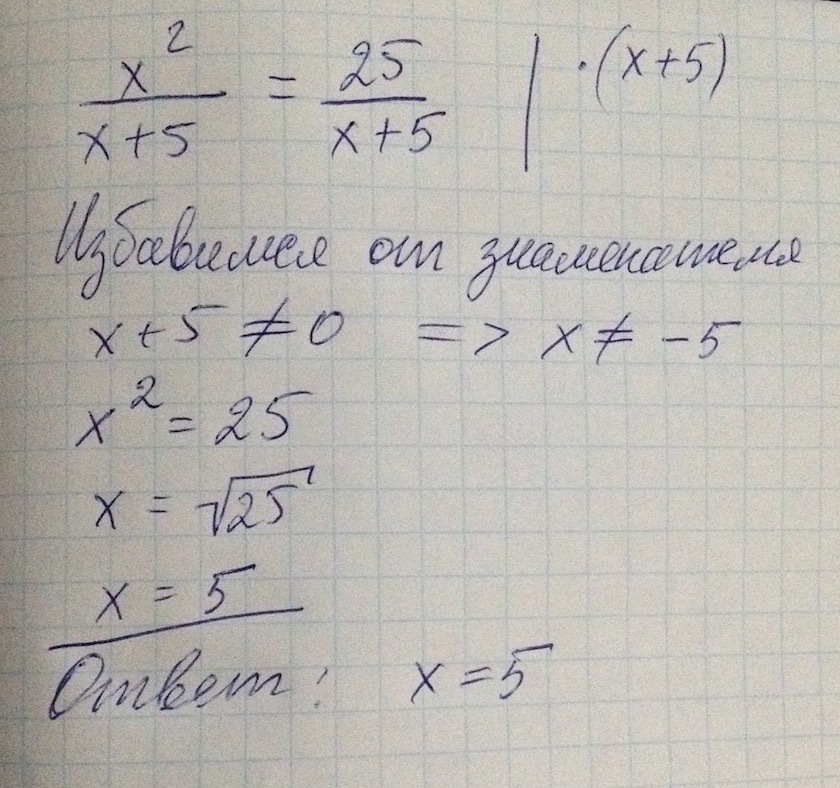 x²/(x+5) = 25/(x+5) | ·(x+5)
Избавимся от знаменателя
x+5 ≠ 0 => x ≠ -5
x² = 25
x = √25
x = 5
Ответ: x = 5